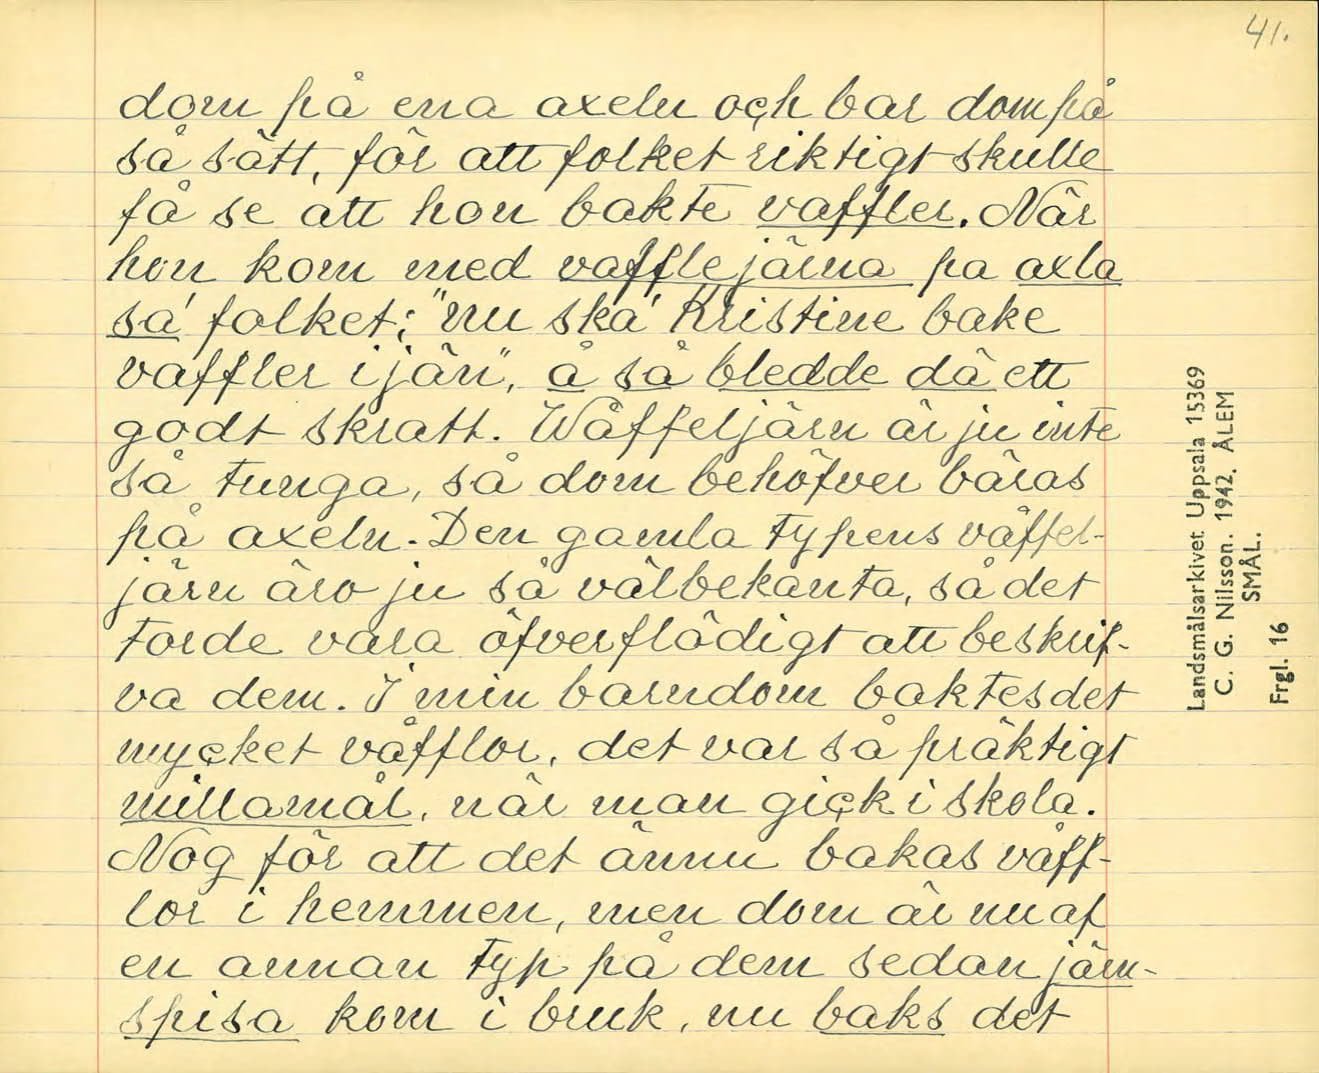 41.
dom på ena axeln och bar dom på
så sätt, för att folket riktigt skulle
få se att hon bakte vaffler. När
hon kom med vafflejärna pa axla
sa' folket; "nu ska' Kristine bake
vaffler i järn", å så bledde dä ett
godt skratt. Wåffeljärn är ju inte
så tunga, så dom behöfver bäras
på axeln. Den gamla typens våffel-
järn äro ju så välbekanta, så det
torde vara öfverflödigt att beskrif-
va dem. I min barndom baktes det
mycket våfflor, det var så präktigt
millamål, när man gick i skola.
Nog för att det ännu bakas våff-
lor i hemmen, men dom är nu af
en annan typ på dem sedan järn-
spisa kom i bruk, nu baks det
Landsmålsarkivet Uppsala 15369
C. G. Nilsson. 1942. ÅLEM
SMÅL.
Frgl. 16